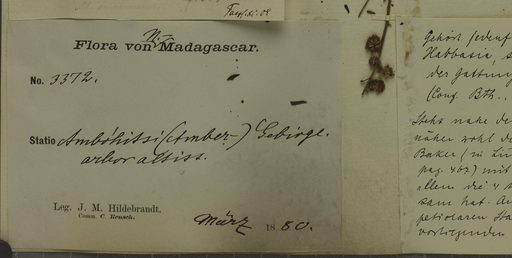 Flora von N. Madagascar.
No. 3372.
Statio Ambohitsi (Amber-) Gebirge.
arbor altiss.
Leg. J. M. Hildebrandt.
Comm. C. Rensch.
März 1880.
Gehört jedenf
Nabbasia, s
der Gattung
(Conf. Bth..
Steht nahe de
näher wohl de
Baker (in
pag. 467) mit
allem die 4
sam hat. An
petiolaren Sta
vorliegenden